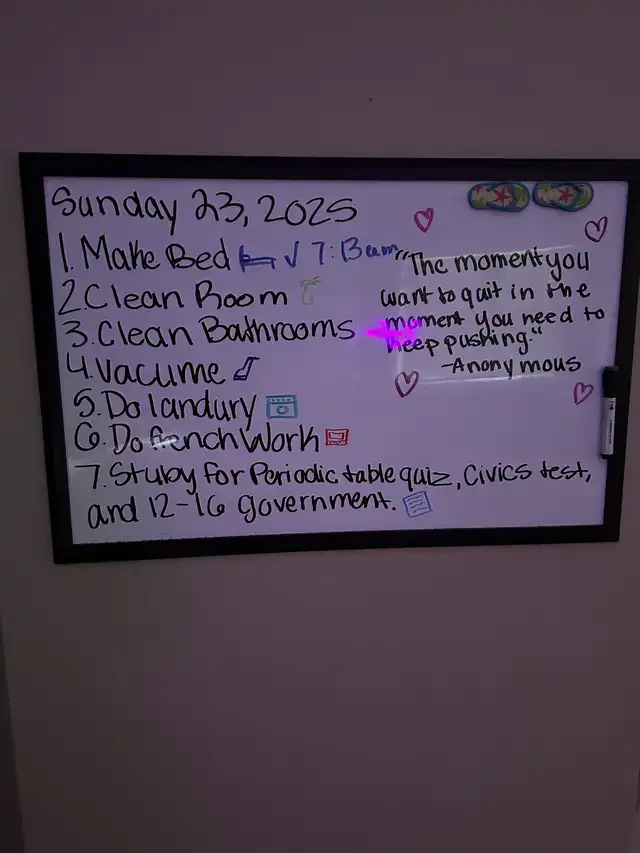 Sunday 23, 2025
1. Make Bed √ 7:13am
2. Clean Room
3. Clean Bathrooms
4. Vacume
5. Do landury
6. Do french Work
7. Stuby for Periodic table quiz, Civics test,
and 12-16 government.
"The moment you
want to quit in the
moment you need to
keep pushing."
-Anonymous